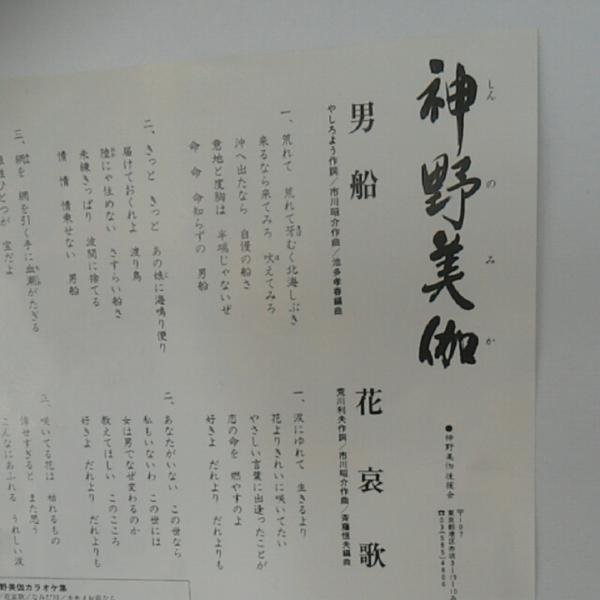 神野美伽
しんのみか
男船
やしろよう作詞/市川昭介作曲/池多孝春編曲
一、荒れて 荒れて牙むく北海しぶき
来るなら来てみろ 吠えてみろ
沖へ出たなら 自慢の船さ
意地と度胸は 半端じゃないぜ
命 命 命知らずの 男船
二、きっと きっと あの娘に海鳴り便り
届けておくれよ 渡り鳥
陸にゃ住めない さすらい船さ
未練きっぱり 波間に捨てる
情 情 情乗せない 男船
三、網を 網を引く手に血潮がたぎる
宝だよ
花哀歌
荒川利夫作詞/市川昭介作曲/斉藤恒夫編曲
一、涙にぬれて 生きるより
花よりきれいに咲いてたい
やさしい言葉に出逢ったことが
恋の命を 燃やすのよ
好きよ だれより だれよりも
二、あなたがいない この世なら
私もいないわ この世には
女は男でなぜ変わるのか
教えてほしい このこころ
好きよ だれより だれよりも
三、咲いてる花は 枯れるもの
倖せすぎると また思う
こんなにあふれる うれしい涙
●神野美伽後援会
〒107
東京都港区赤坂
☎03(585)4806
野美伽カラオケ集